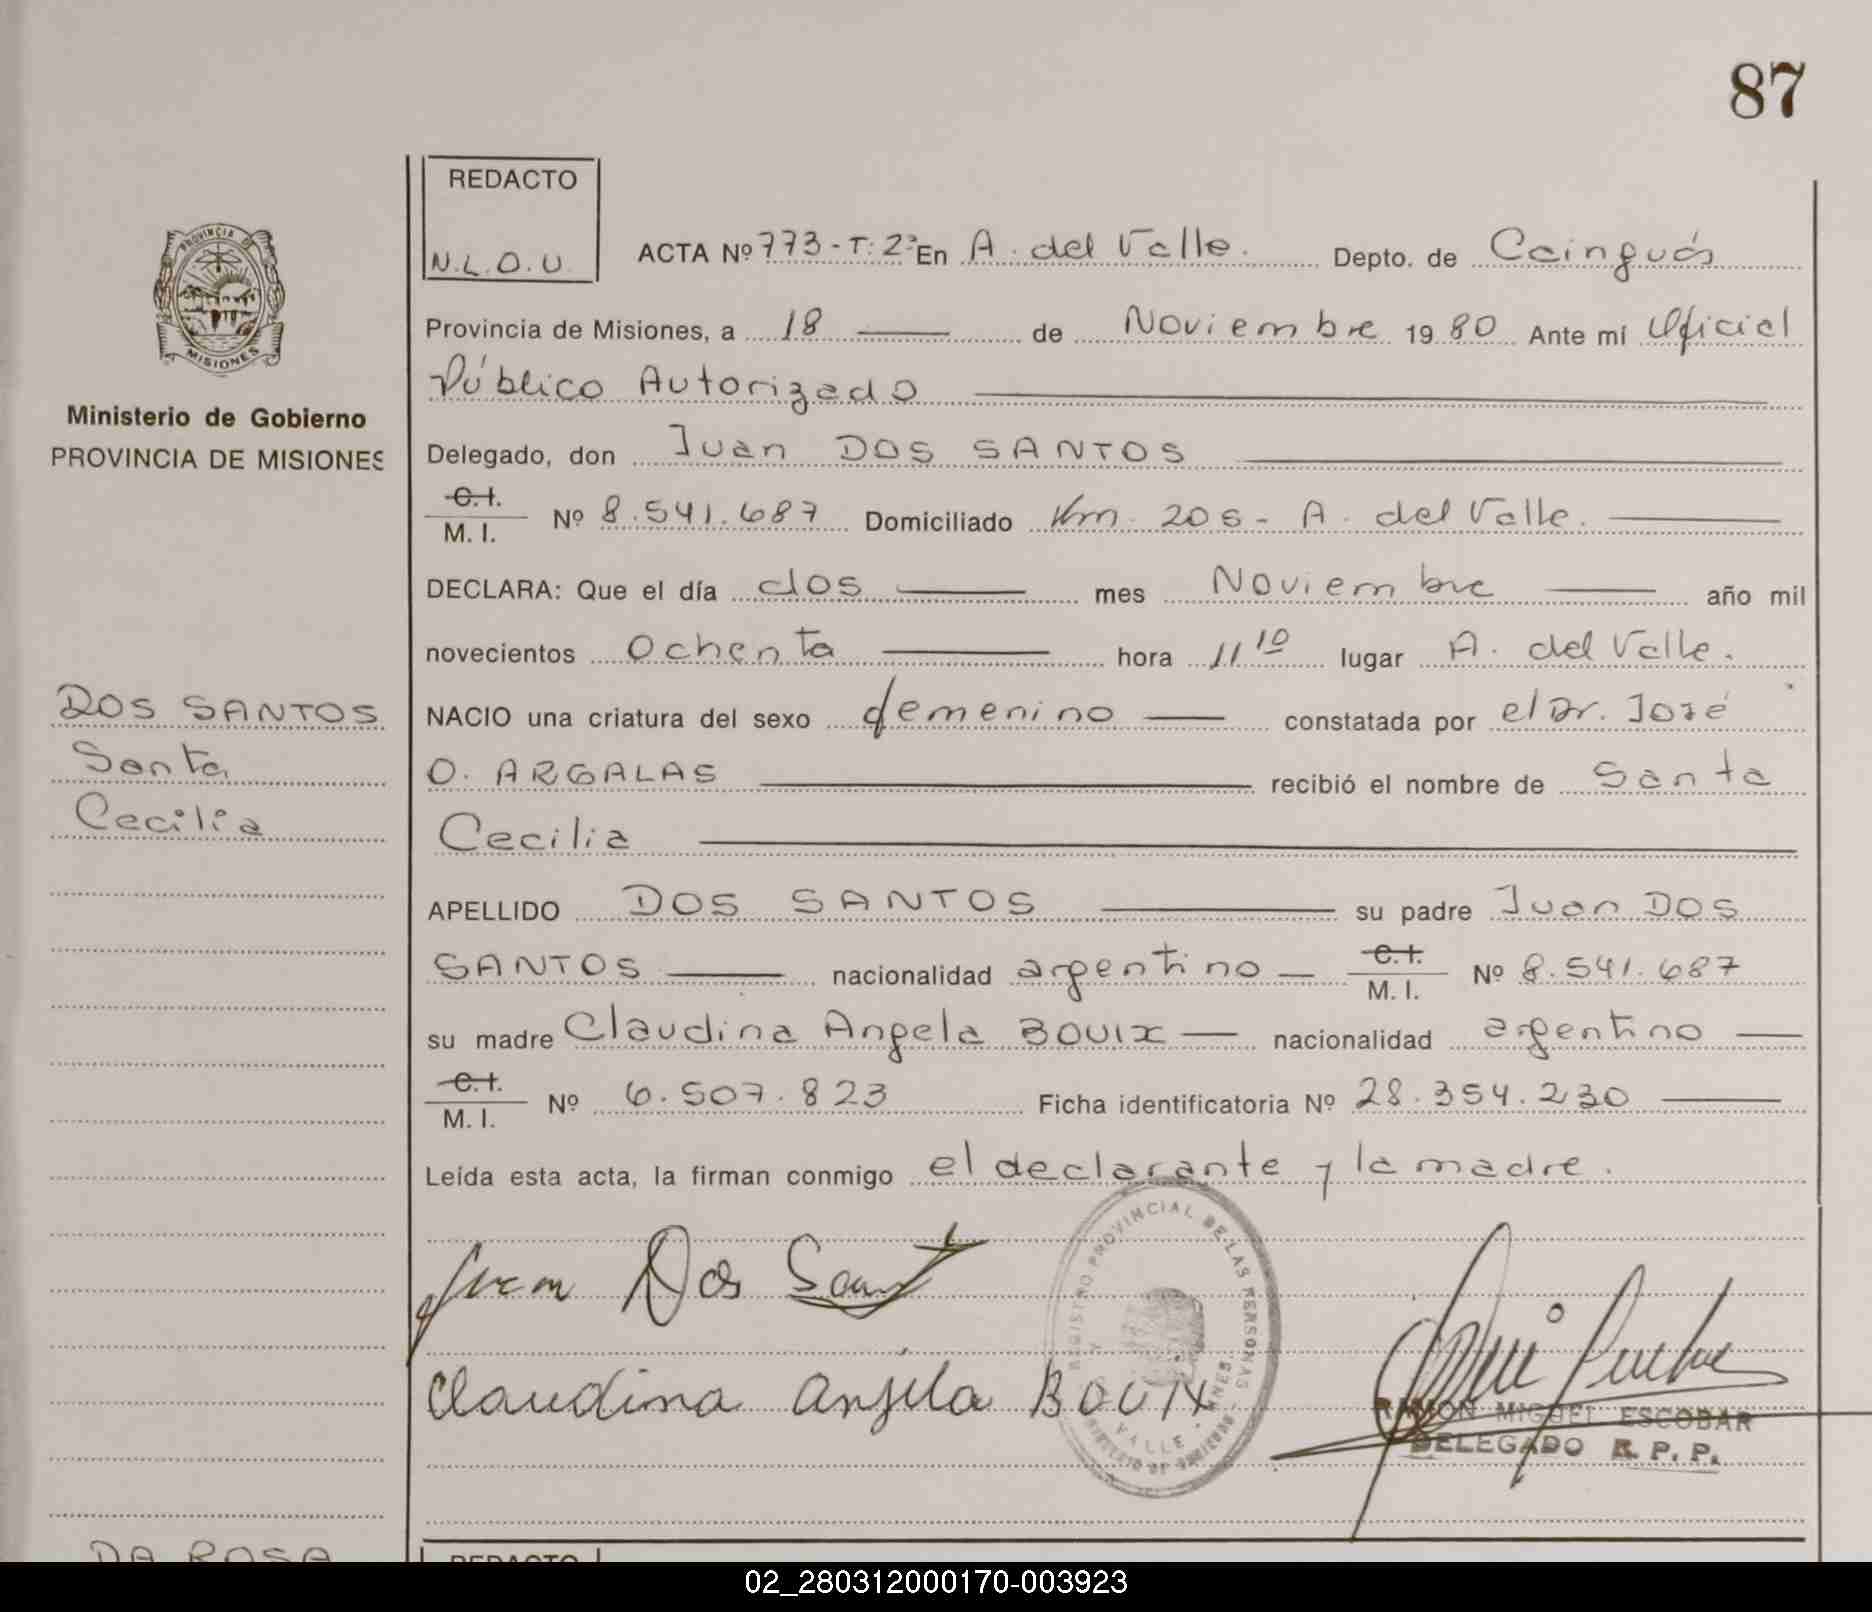 87
REDACTO
N.L.O.U.
ACTA Nº 773-T:2º En A. del Valle. Depto. de Cainguás
PROVINCIA DE MISIONES
Provincia de Misiones, a 18 de Noviembre 1980 Ante mí Oficial
Público Autorizado
Ministerio de Gobierno
PROVINCIA DE MISIONES
Delegado, don Juan DOS SANTOS
C.I. M.I. Nº 8.541.687 Domiciliado Km. 206- A. del Valle.
DECLARA: Que el día dos mes Noviembre año mil
novecientos Ochenta hora 11 10 lugar A. del Valle.
DOS SANTOS
Santa
Cecilia
NACIO una criatura del sexo femenino constatada por el Dr. José
O. ARGALAS recibió el nombre de Santa
Cecilia
APELLIDO DOS SANTOS su padre Juan DOS
SANTOS nacionalidad argentino C.I. M.I. Nº 8.541.687
su madre Claudina Angela BOUIX nacionalidad argentino
C.I. M.I. Nº 6.507.823 Ficha identificatoria Nº 28.354.230
Leída esta acta, la firman conmigo el declarante y la madre.
Juan Dos Sant
REGISTRO PROVINCIAL DE LAS PERSONAS
VALLE - MNES.
Claudina Anjela BOUIX
RAMON MIGUEL ESCOBAR
DELEGADO R. P. P.
DA ROSA
REDACTO
02_280312000170-003923